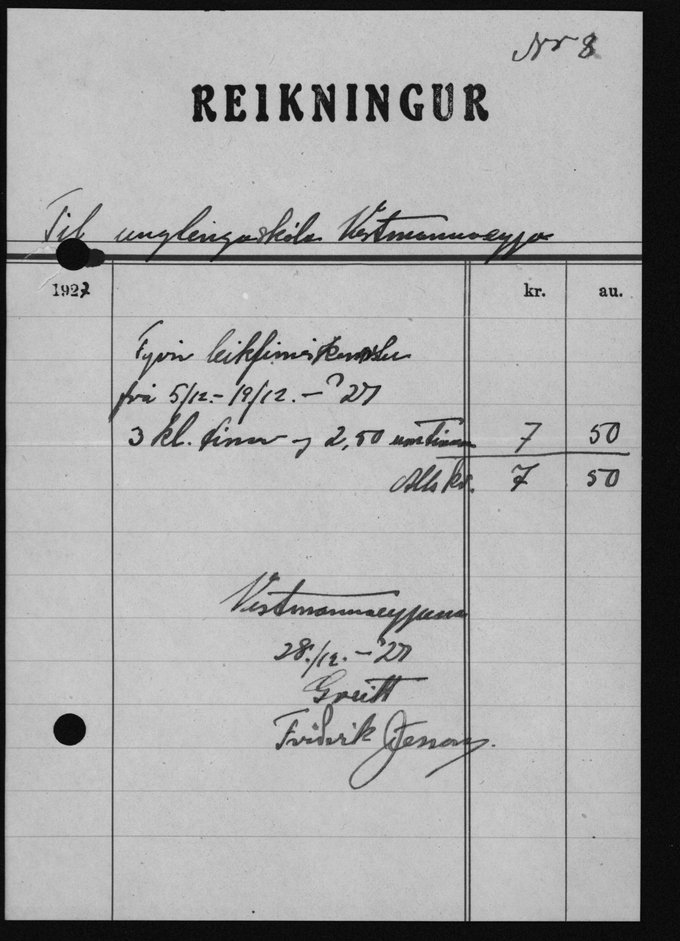 Nr 8
REIKNINGUR
Til unglingaskóla Vestmannaeyja
1927 kr. au.
Fyrir leikfimiskenslu
frá 5/12.- 19/12. - '27
3 kl. tímar 2,50 um tímann 7 50
Alls kr. 7 50
Vestmannaeyjum
28./12. - '27
Greitt
Friðrik Jesson.